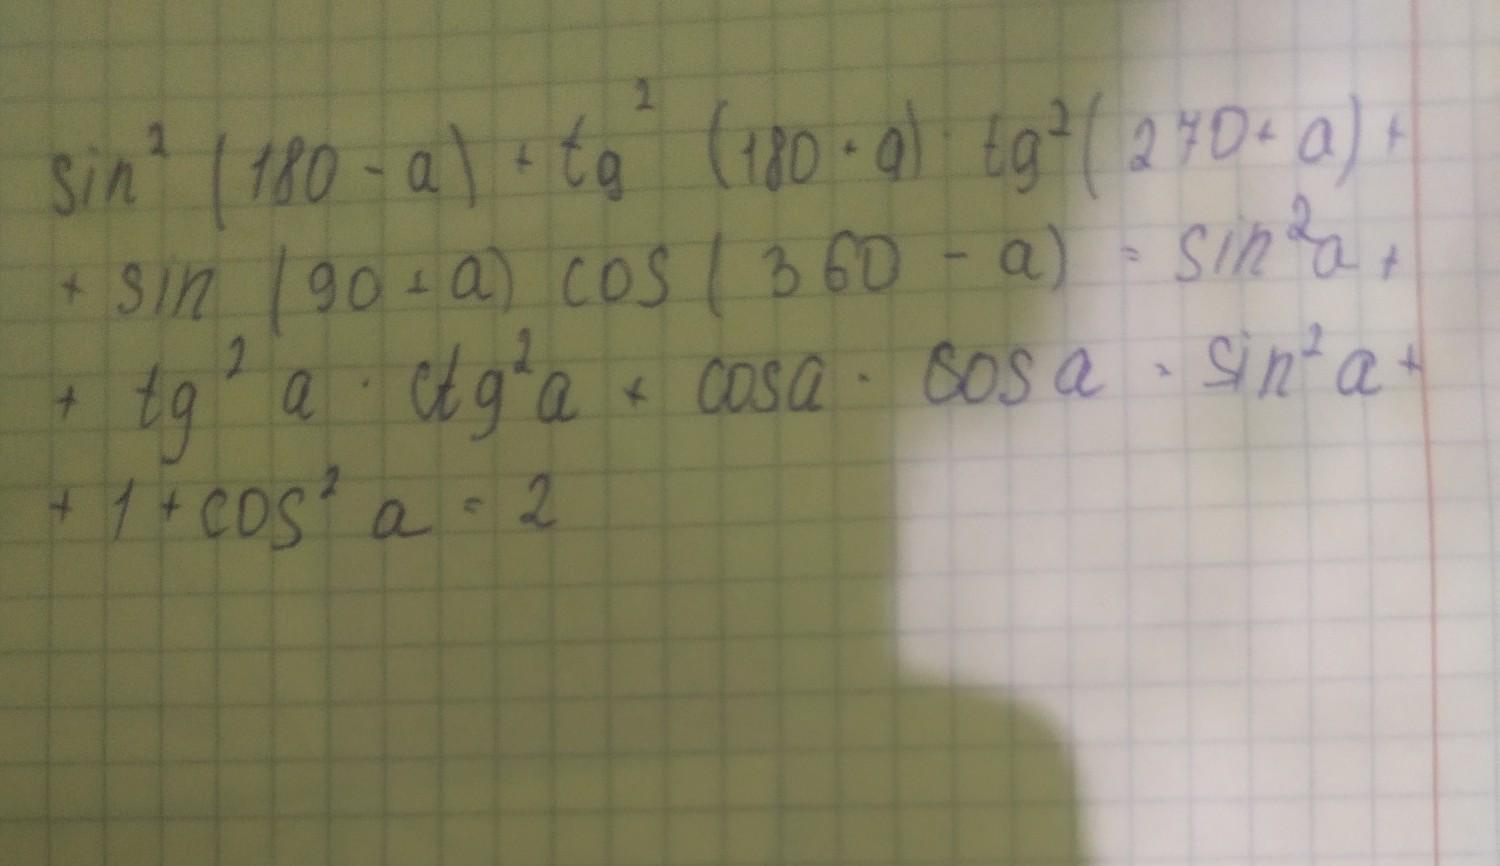 sin² (180 - a) + tg² (180 + a) · tg² (270 + a) +
+ sin (90 + a) cos (360 - a) = sin² a +
+ tg² a · ctg² a + cos a · cos a = sin² a +
+ 1 + cos² a = 2